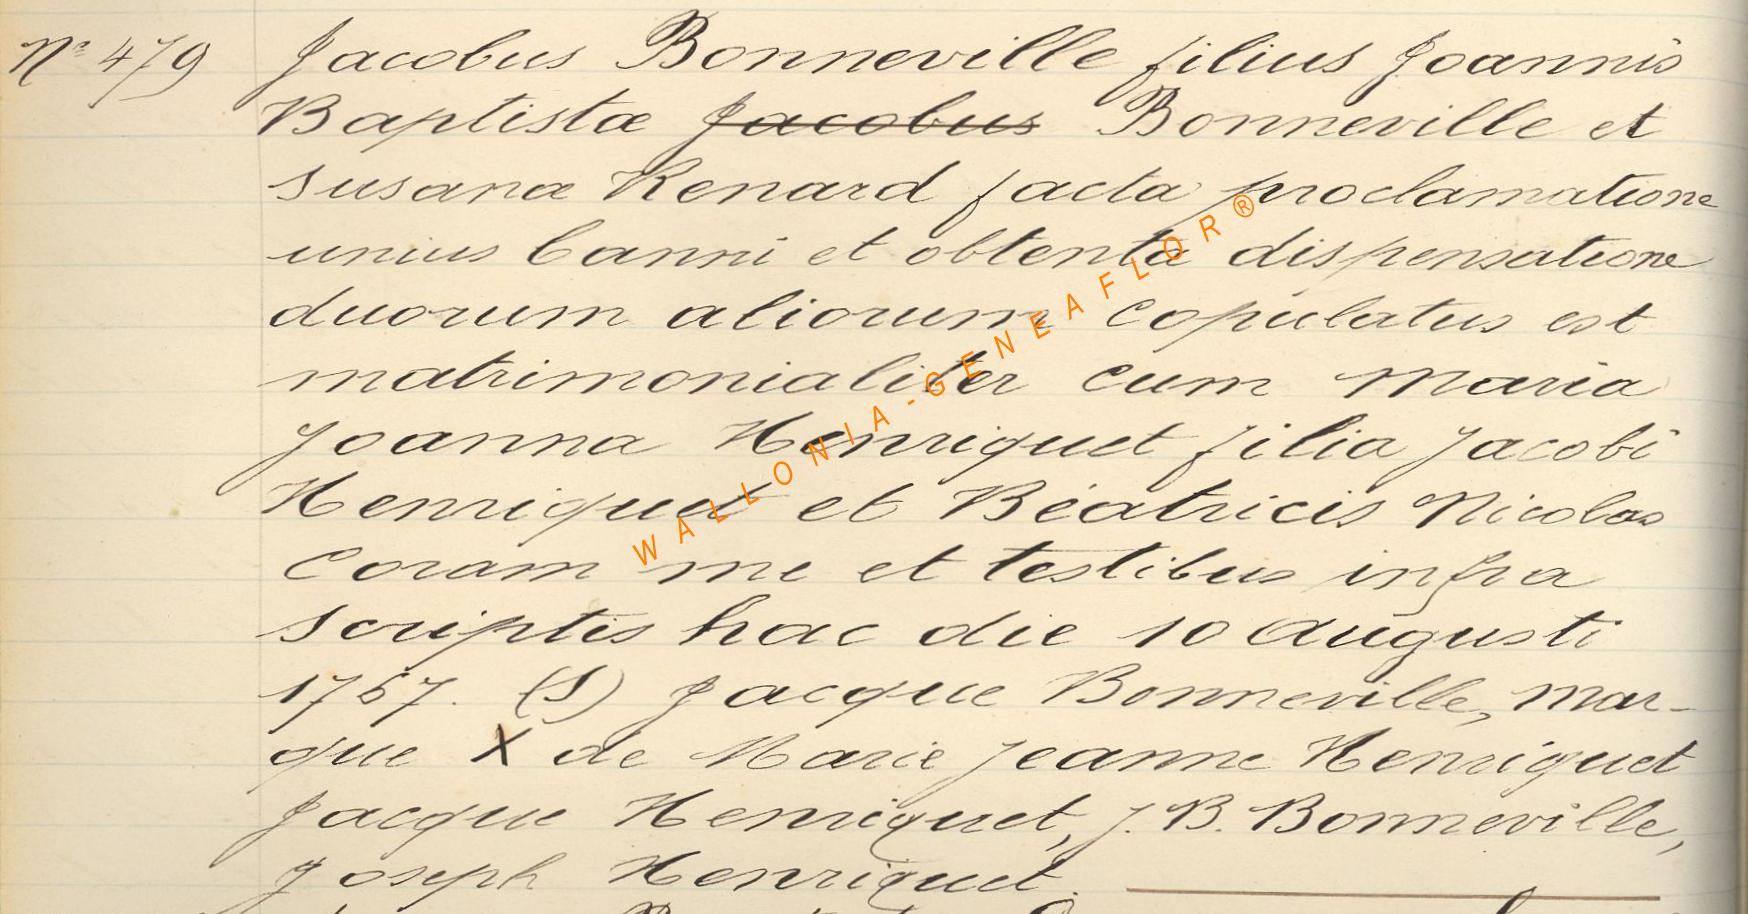 Nº 479 Jacobus Bonneville filius Joannis
Baptistæ Jacobus Bonneville et
Susanæ Renard facta proclamatione
unius banni et obtenta dispensatione
duorum aliorum copulatus est
matrimonialiter cum Maria
Joanna Henriquet filia Jacobi
Henriquet et Béatricis Nicolas
Coram me et testibus infra
scriptis hac die 10 Augusti
1757. (S) Jacque Bonneville, mar-
que X de Marie Jeanne Henriquet
Jacque Henriquet, J. B. Bonneville,
Joseph Henriquet.
WALLONIA-GENEAFLOR®